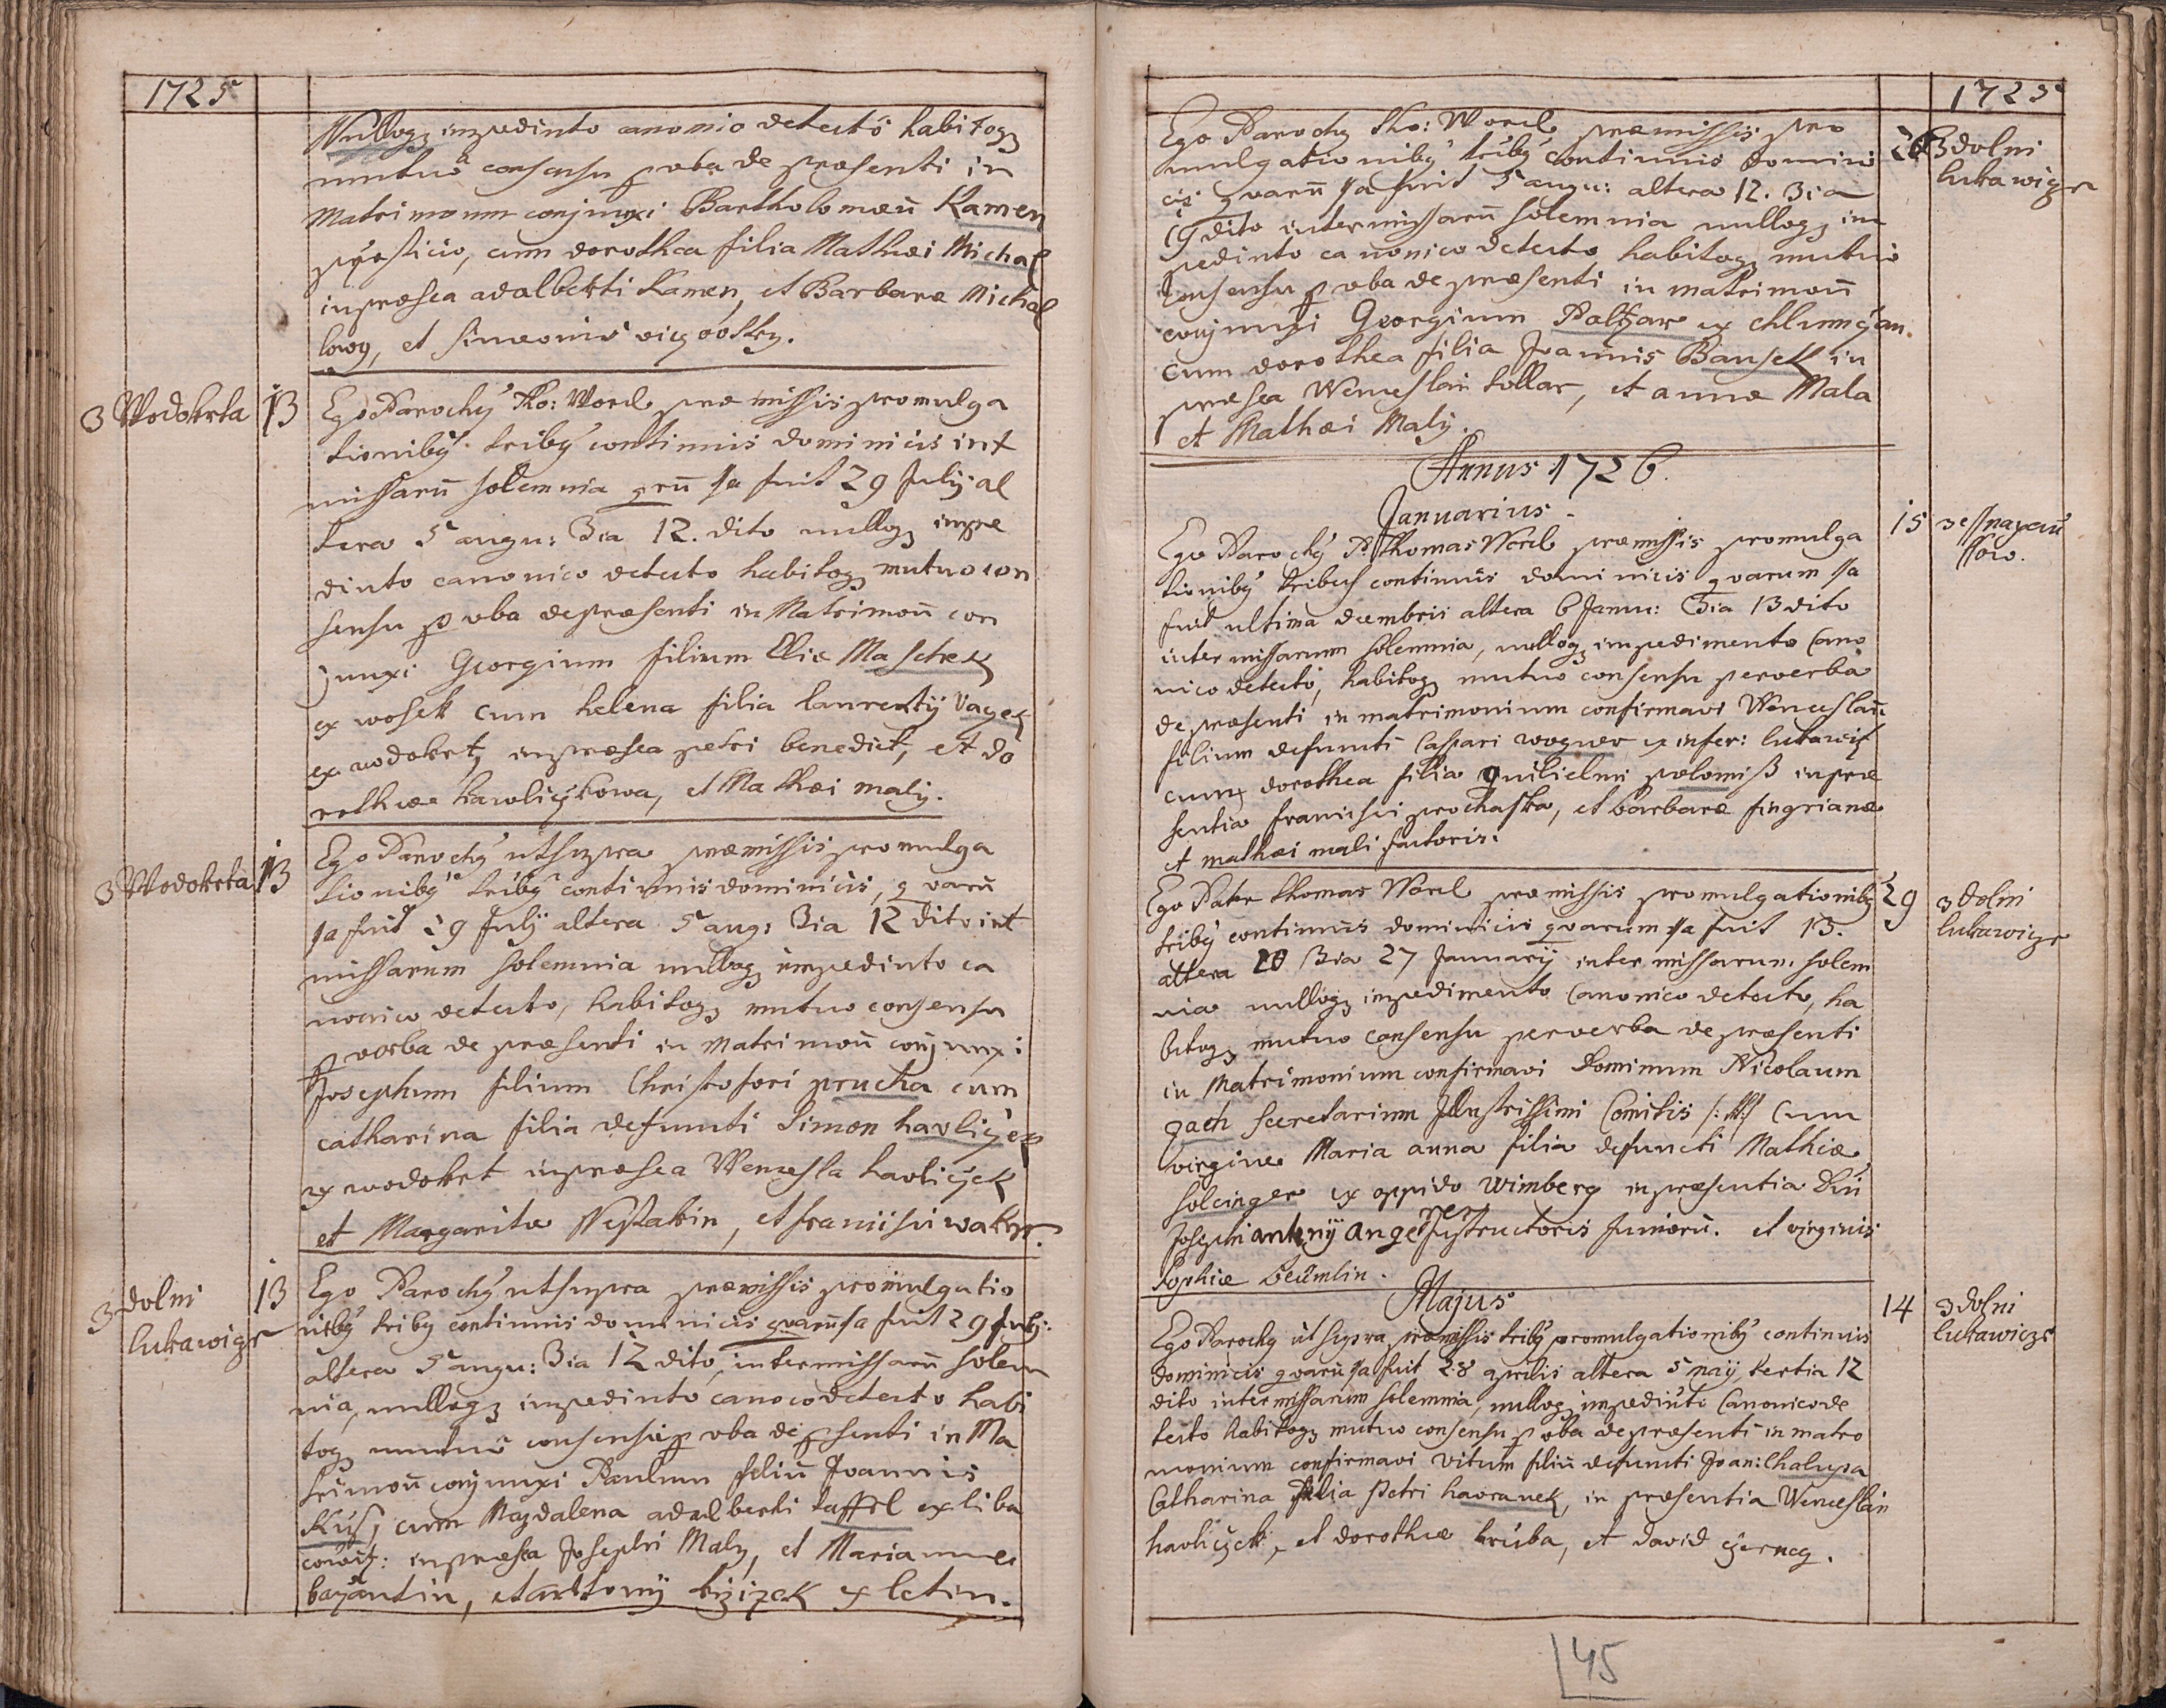 1725
Nulloq3 impedinto canonio detectó habitoq3
mutuó consensu p vba de præsenti in
Matrimonm conjunxi Bartholomæū Kamen
cum dorothea filia Mathæi Michal
in præsea adalberti Kamen, et Barbaræ Michal
lowy, et Simeonis
z Wodokrta 13 Ego Parochy Tho: Worel præmissis promulga
tioniby triby continuis dominicis int
missarū solemnia qrū 1a fuit 29 Julij al
tera 5 augu: 3ia 12. dito nulloq3 impe
dinto canonico detecto habitoq3 mutuo con
sensu p vba de præsenti in Matrimoū con
junxi Georgium filium Eliæ Maschek
ex wosek cum helena filia laurentij Vacek
ex wodokrt, in præsea petri benedict, et do
rotheæ hawlicžkowa, et Mathæi maly.
z Wodokrta 13 Ego Parochy ut supra præmissis promulga
tioniby triby continuis dominicis, qvarū
1a fuit 29 Julij altera 5 aug: 3ia 12 dito int
missarum solemnia nulloq3 impedinto ca
nonico detecto, habitoq3 mutuo consensu
p verba de præsenti in Matrimoū conjunxi
Josephum filium Christofori prucha cum
catharina filia defuncti Simon havličžek
ex wodokrt in præsea Wencesla havličžek
et Margaritæ et francisci
z dolni 13 Ego Parochy ut supra præmissis promulgatio
lukawize niby triby continuis dominicis qvarū 1a fuit 29 July:
altera 5 augu: 3ia 12 dito, inter missarū solem
nia, nulloq3 impedinto canoco detecto habi
toq3 mutuó consensu p vba de psenti in Ma
trimoū conjunxi Paulum filiū Joannis
Kus, cum Magdalena adalberti taffel ex liba
cowitz: in præsea Josephi Maly, et Mariannæ
et antonij ex letin.
1725
Ego Parochy Tho: Worel præmissis pro 26 z dolni
mulgationiby triby continuis domini lukawize
cis qvarū 1a fuit 5 augu: altera 12. 3ia
19 dito inter missarū solemnia nulloq3 im
pedinto canonico detecto habitoq3 mutuó
consensu p vba de præsenti in matrimoū
conjunxi Georgium Paltzar ex chlumčan.
cum dorothea filia Joannis Bansek in
præsea Wenceslai kollar, et annæ Mala
et Mathæi Maly.
Annus 1726.
Januarius.
Ego Parochy P. Thomas Worel præmissis promulga 15
tioniby tribus continuis dominicis qvarum 1a
fuit ultima decembris altera 6 Janu: 3ia 13 dito
inter missarum solemnia, nulloq3 impedimento Cano
nico detecto, habitoq3 mutuo consensu per verba
de præsenti in matrimonium confirmavi Wenceslaū
filium defuncti Caspari wogner ex infer: lukawitz
cum dorothea filia Guilielmi in præ
sentia francisci prochaska, et barbaræ
et mathæi mali factoris.
Ego Pater Thomas Worel præmissis promulgationiby 29 z dolni
triby continuis dominicis qvarum 1a fuit 13. lukawicze
altera 20 3ia 27 Januarij inter missarum solem
nia nulloq3 impedimento Canonico detecto, ha
bitoq3 mutuo consensu per verba de præsenti
in Matrimonium confirmavi Dominum Nicolaum
Illustrissimi Comitis cum
gach secretarium
virgine Maria anna filia defuncti Mathiæ
Solcinger ex oppido Wimberg in præsentia Dni
Josephi antonij angerper Instructoris Juniorū. et virginis
Sophiæ
Majus
Ego Parochy ut supra, præmissis triby promulgationiby continuis 14 z dolni
dominicis qvarū 1a fuit 28 aprilis altera 5 maij, tertia 12 lukawicze
dito inter missarum solemnia, nulloq3 impedinto Canonico de
tecto habitoq3 mutuo consensu p vba de præsenti in matro
monium confirmavi Vitum filiū defuncti Joan: Chalupa
Catharina filia Petri havranek, in præsentia Wenceslai
havliczek, et dorotheæ kruba, et david czerney.
45